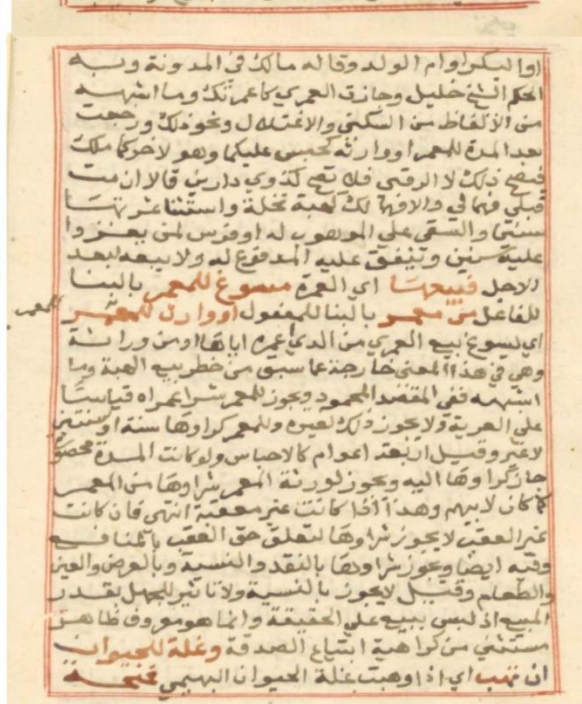 او اليكما او ام الولد وقاله مالك في المدونة وبه
الحكم الشيخ خليل وجازت العمرى كاعمرتك وما اشبهه
من الالفاظ من السكنى والاغتلال ونحو ذلك ورجعت
بعد المدة للمعمر او وارثه كحبس عليكما وهو لاخركما ملك
فيصح ذلك لا الرقبى فلا تصح كذوي دارين قالا ان مت
قبلي فهما لي والا فهما لك كهبة نخلة واستثنا ثمرتها
سنين والسقي على الموهوب له او فرس لمن يغزوا
عليه سنين وينفق عليه المدفوع له ولا يبيعه لبعد
الاجل فبيعها اي العمرى مسوغ للمعمر بالبنا
للفاعل من معمر بالبنا للمفعول او وارث للمعمر
للمعمر
اي يسوغ بيع العمرى من الذي اعمره اياها او من وراثة
وهي في هذا المعنى خارجة عما سبق من خطر بيع الهبة وما
اشبهه ففي المقصد المحمود ويجوز للمعمر شرا عمراه قياسا
على العرية ولا يجوز ذلك لغيره وللمعمر كراوها سنة او سنتين
لا غير وقيل اربعة اعوام كالاحباس ولو كانت المدة محصورة
جاز كراوها اليه ويجوز لورثة المعمر شراوها من المعمر
كما كان لابيهم وهذا اذا كانت غير معقبة انتهى فان كانت
على العقب لا يجوز شراوها لتعلق حق العقب بالمنافع
وفيه ايضا ويجوز شراوها بالنقد والنسية وبالعرض والعين
والطعام وقيل لا يجوز بالنسية ولا تاثير للجهل بقدر
المبيع اذ ليس ببيع على الحقيقة وانما هو معروف ظاهره
مستثنى من كراهية ابتياع الصدقة وغلة للحيوان
ان تهب اي اذا وهبت غلة الحيوان البهيمي